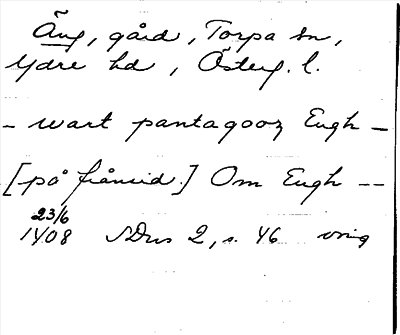 Äng, gård, Torpa sn,
Ydre hd, Österg. l.
- wart pantagooz Engh -
[på frånsid.] Om Engh --
23/6
1408 SDns 2, s. 46 orig